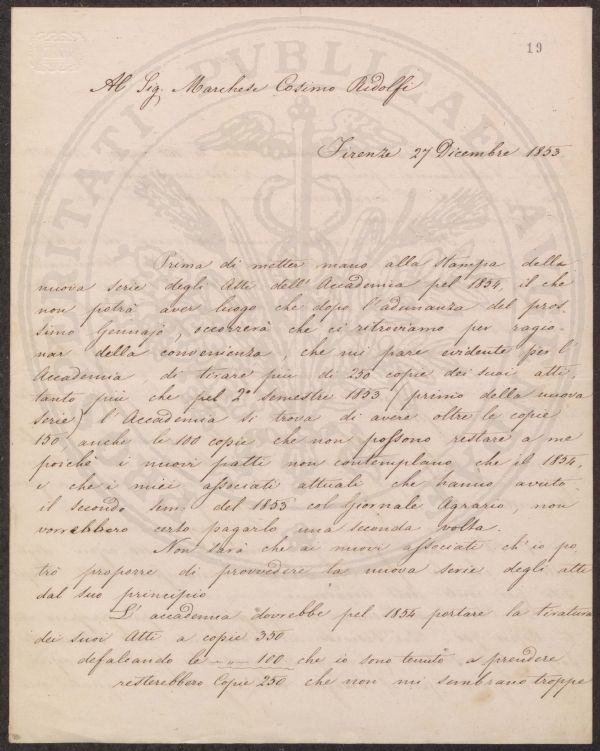 19
Al Sig. Marchese Cosimo Ridolfi
Firenze 27 Dicembre 1853
Prima di metter mano alla stampa della
nuova serie degli Atti dell'Accademia pel 1854, il che
non potrà aver luogo che dopo l'adunanza del pros-
simo Gennajo, occorrerà che ci ritroviamo per ragio-
nar della convenienza, che mi pare evidente per l'
Accademia di tirare più di 250 copie dei suoi atti
tanto più che pel 2° semestre 1853 primo della nuova
serie) l'Accademia si trova di avere oltre le copie
150 anche le 100 copie che non possono restare a me
poichè i nuovi patti non contemplano che il 1854,
e che i miei associati attuali che hanno avuto
il secondo sem. del 1853 col Giornale Agrario, non
vorrebbero certo pagarlo una seconda volta.
Non sarà che ai nuovi associati ch'io po
trò proporre di provvedere la nuova serie degli atti
dal suo principio
L'accademia dovrebbe pel 1854 portare la tiratura
dei suoi Atti a copie 350
defalcando le - „ - 100 che io sono tenuto a prendere
resterebbero Copie 250 che non mi sembrano troppe
PUBLICAE